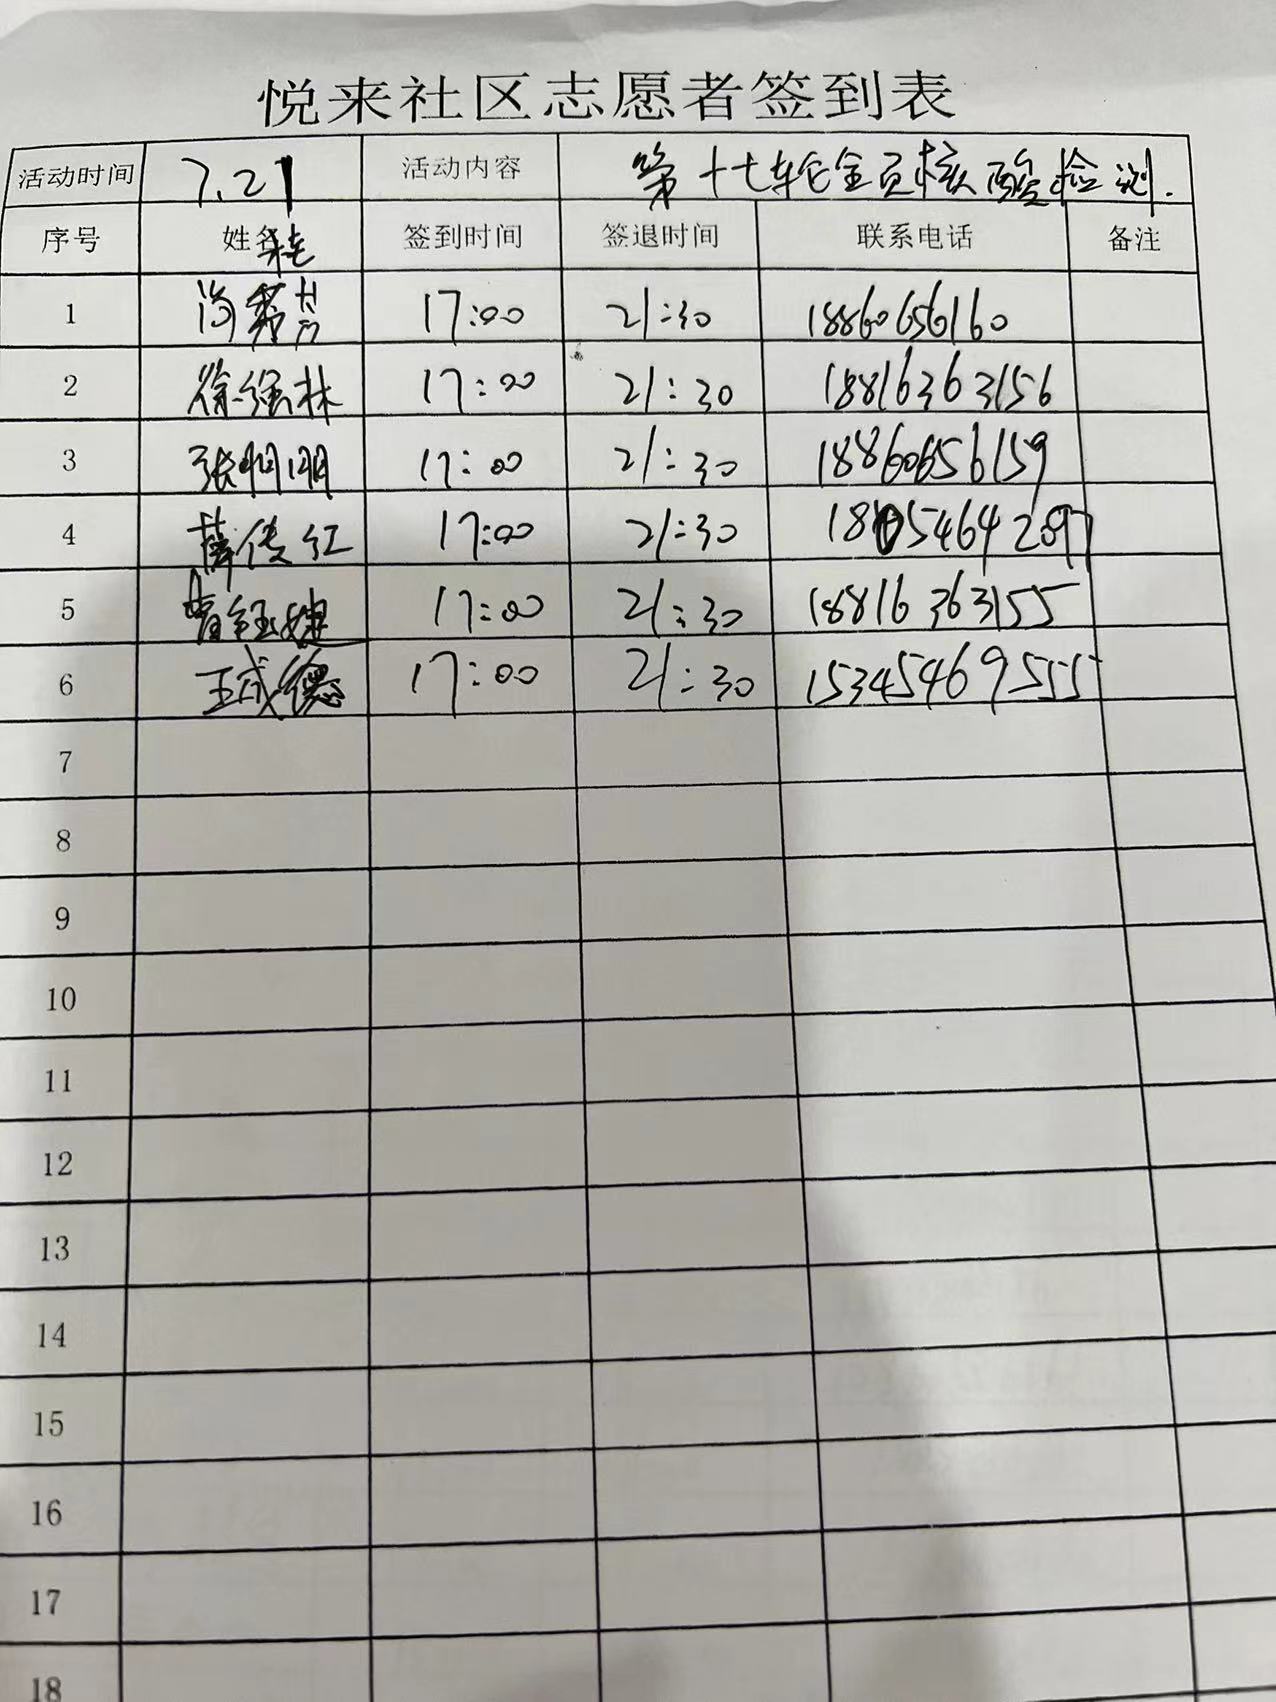 悦来社区志愿者签到表
活动时间 7.21 活动内容 第十七轮全员核酸检测.
序号 姓名 签到时间 签退时间 联系电话 备注
1 17:00 21:30 18860656160
2 徐强林 17:00 21:30 18816363156
3 张明明 17:00 21:30 18860656159
4 薛传红 17:00 21:30 18054642097
5 17:00 21:30 18816363155
6 王成德 17:00 21:30 15345469555
7
8
9
10
11
12
13
14
15
16
17
18